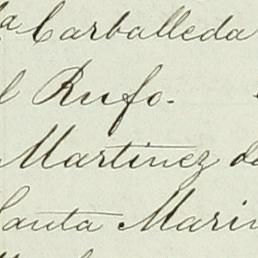 la Carballeda
l Rufo.
Martinez de
Santa Marin